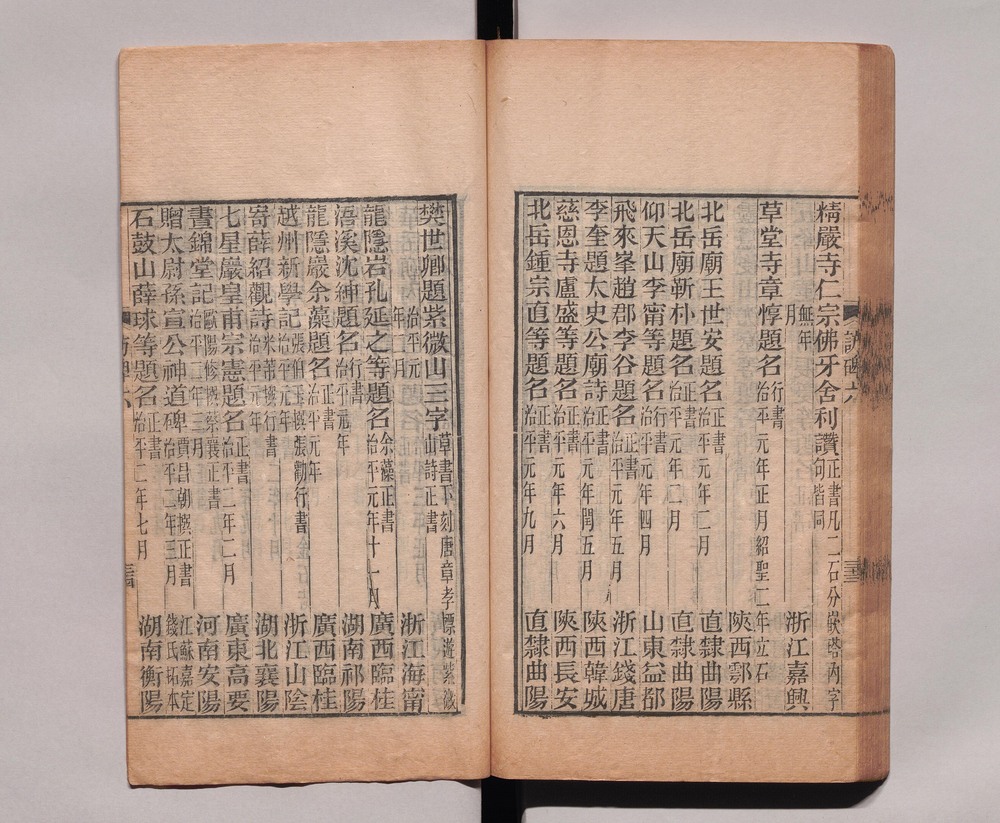 精嚴寺仁宗佛牙舍利讚正書凡二石分嵌塔兩字句皆同
無年月 浙江嘉興
草堂寺章惇題名行書治平元年正月紹聖二年立石
陝西鄠縣
北岳廟王世安題名正書治平元年二月 直隸曲陽
北岳廟靳朴題名正書治平元年二月 直隸曲陽
仰天山李甯等題名行書治平元年四月 山東益都
飛來峯趙郡李谷題名正書治平元年五月 浙江錢唐
李奎題太史公廟詩正書治平元年閏五月 陝西韓城
慈恩寺盧盛等題名正書治平元年六月 陝西長安
北岳鍾宗直等題名正書治平元年九月 直隸曲陽
樊世卿題紫微山三字草書下刻唐章孝標遊紫微山詩正書
治平元年十二月 浙江海甯
龍隱岩孔延之等題名余藻正書治平元年十一月 廣西臨桂
浯溪沈紳題名行書治平元年 湖南祁陽
龍隱巖余藻題名正書治平元年 廣西臨桂
越州新學記張伯玉撰張勸行書治平元年 浙江山陰
寄薛紹觀詩米芾撰行書治平元年 湖北襄陽
七星巖皇甫宗憲題名正書治平二年二月 廣東高要
晝錦堂記歐陽修撰蔡襄正書治平二年三月 河南安陽
贈太尉孫宣公神道碑賈昌朝撰正書治平二年三月 江蘇嘉定錢氏拓本
石鼓山薛球等題名正書治平二年七月 湖南衡陽